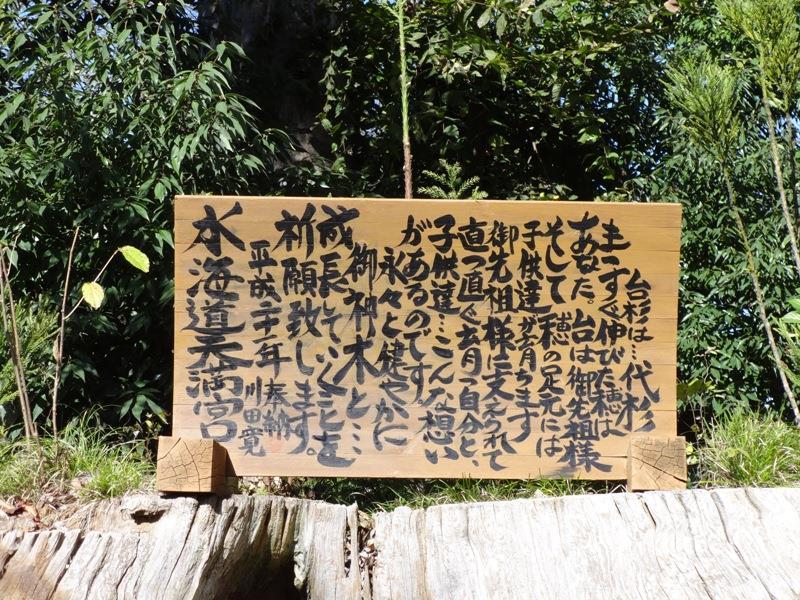 台杉は…代杉
まっすぐ伸びた穂は
あなた。台は御先祖様
そして穂の足元には
子供達が育ちます
御先祖様に支えられて
直っ直ぐ育つ自分と、
子供達…こんな想い
があるのです
永々と健やかに
御神木と…
成長していくことを
祈願致します。
平成二十一年 奉納
川田寛
水海道天満宮